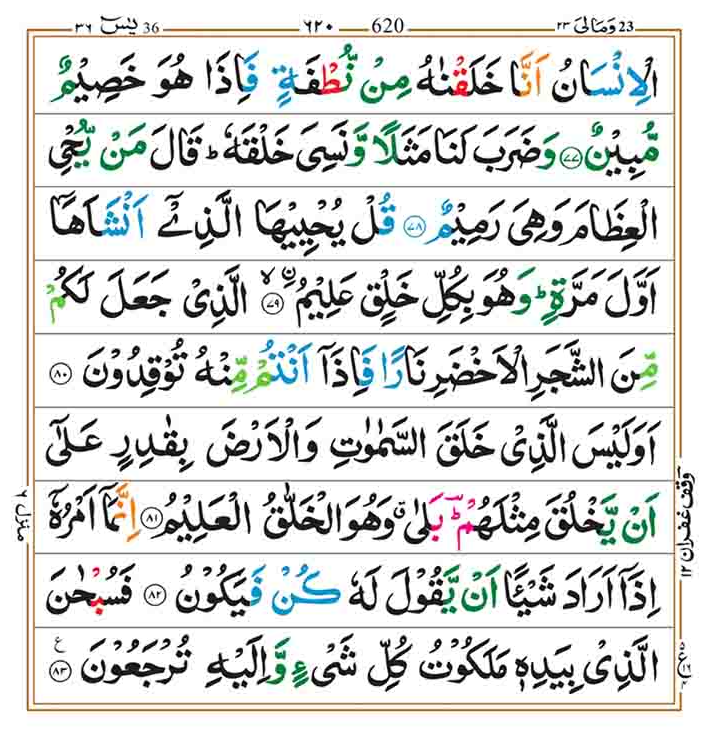 36 يٰسٓ ٣٦
٦٢٠ 620
23 وَمَالِىَ ٢٣
الْاِنْسَانُ اَنَّا خَلَقْنٰهُ مِنْ نُّطْفَةٍ فَاِذَا هُوَ خَصِيْمٌ
مُّبِيْنٌ ﴿٧٧﴾ وَضَرَبَ لَنَا مَثَلًا وَّنَسِىَ خَلْقَهٗ ؕ قَالَ مَنْ يُّحْىِ
الْعِظَامَ وَهِىَ رَمِيْمٌ ﴿٧٨﴾ قُلْ يُحْيِيْهَا الَّذِىْۤ اَنْشَاَهَاۤ
اَوَّلَ مَرَّةٍ ؕ وَهُوَ بِكُلِّ خَلْقٍ عَلِيْمُ ۨ ﴿٧٩﴾ ۙ الَّذِىْ جَعَلَ لَكُمْ
مِّنَ الشَّجَرِ الْاَخْضَرِ نَارًا فَاِذَاۤ اَنْتُمْ مِّنْهُ تُوْقِدُوْنَ ﴿٨٠﴾
اَوَلَيْسَ الَّذِىْ خَلَقَ السَّمٰوٰتِ وَالْاَرْضَ بِقٰدِرٍ عَلٰٓى
اَنْ يَّخْلُقَ مِثْلَهُمْ ؕ بَلٰى ۗ وَهُوَ الْخَلّٰقُ الْعَلِيْمُ ﴿٨١﴾ اِنَّمَاۤ اَمْرُهٗۤ
اِذَاۤ اَرَادَ شَيْئًا اَنْ يَّقُوْلَ لَهٗ كُنْ فَيَكُوْنُ ﴿٨٢﴾ فَسُبْحٰنَ
الَّذِىْ بِيَدِهٖ مَلَكُوْتُ كُلِّ شَىْءٍ وَّاِلَيْهِ تُرْجَعُوْنَ ﴿٨٣﴾ ع
وقف غفران ١٢
منزل ٦